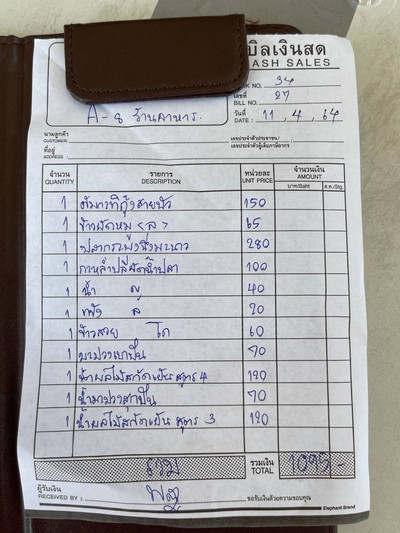 บิลเงินสด
CASH SALES
BOOK NO. 34
เลขที่ 27
BILL NO.
A-8 ร้านอาหาร
วันที่ 11, 4, 64
DATE :
นามลูกค้า
CUSTOMER
ที่อยู่
ADDRESS
เลขประจำตัวประชาชน/
เลขประจำตัวผู้เสียภาษีอากร
จำนวน รายการ หน่วยละ จำนวนเงิน
QUANTITY DESCRIPTION UNIT PRICE AMOUNT
บาท/Baht ส.ต./Stg.
1 ต้มกะทิกุ้งสายบัว 150
1 ข้าวผัดหมู <ล> 65
1 ปลากระพงนึ่งมะนาว 280
1 กาหล่ำปลีผัดน้ำปลา 100
1 น้ำ ญ 40
1 แข็ง ล 20
1 ข้าวสวย โถ 60
1 70
1 น้ำผลไม้สกัดเย็น สูตร 4 120
1 70
1 น้ำผลไม้สกัดเย็น สูตร 3 120
รวม รวมเงิน 1095-
TOTAL
ผู้รับเงิน
RECEIVED BY : ขอรับเงินด้วยความขอบคุณ
Elephant Brand